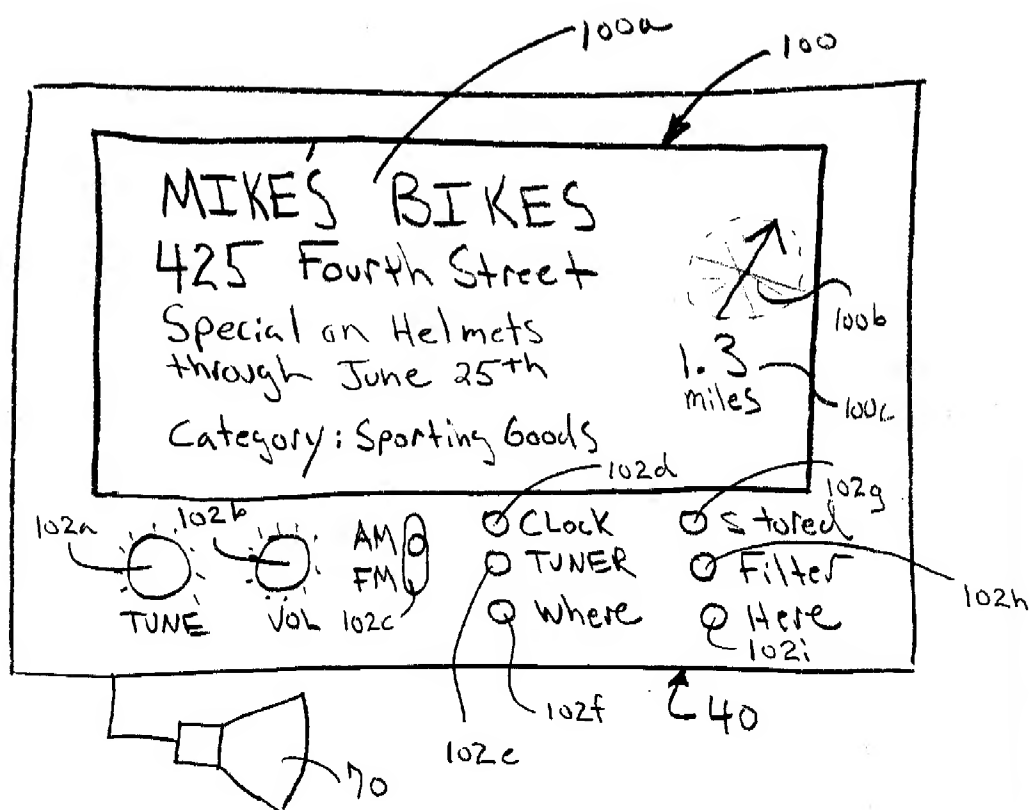 100a
100
MIKE'S BIKES
425 Fourth Street
Special on Helmets
through June 25th
Category: Sporting Goods
100b
1.3
miles
100c
102a
102b
102d
102g
AM
FM
102c
TUNE
VOL
CLock
TUNER
Where
Stored
Filter
Here
102h
102i
102f
102e
40
70